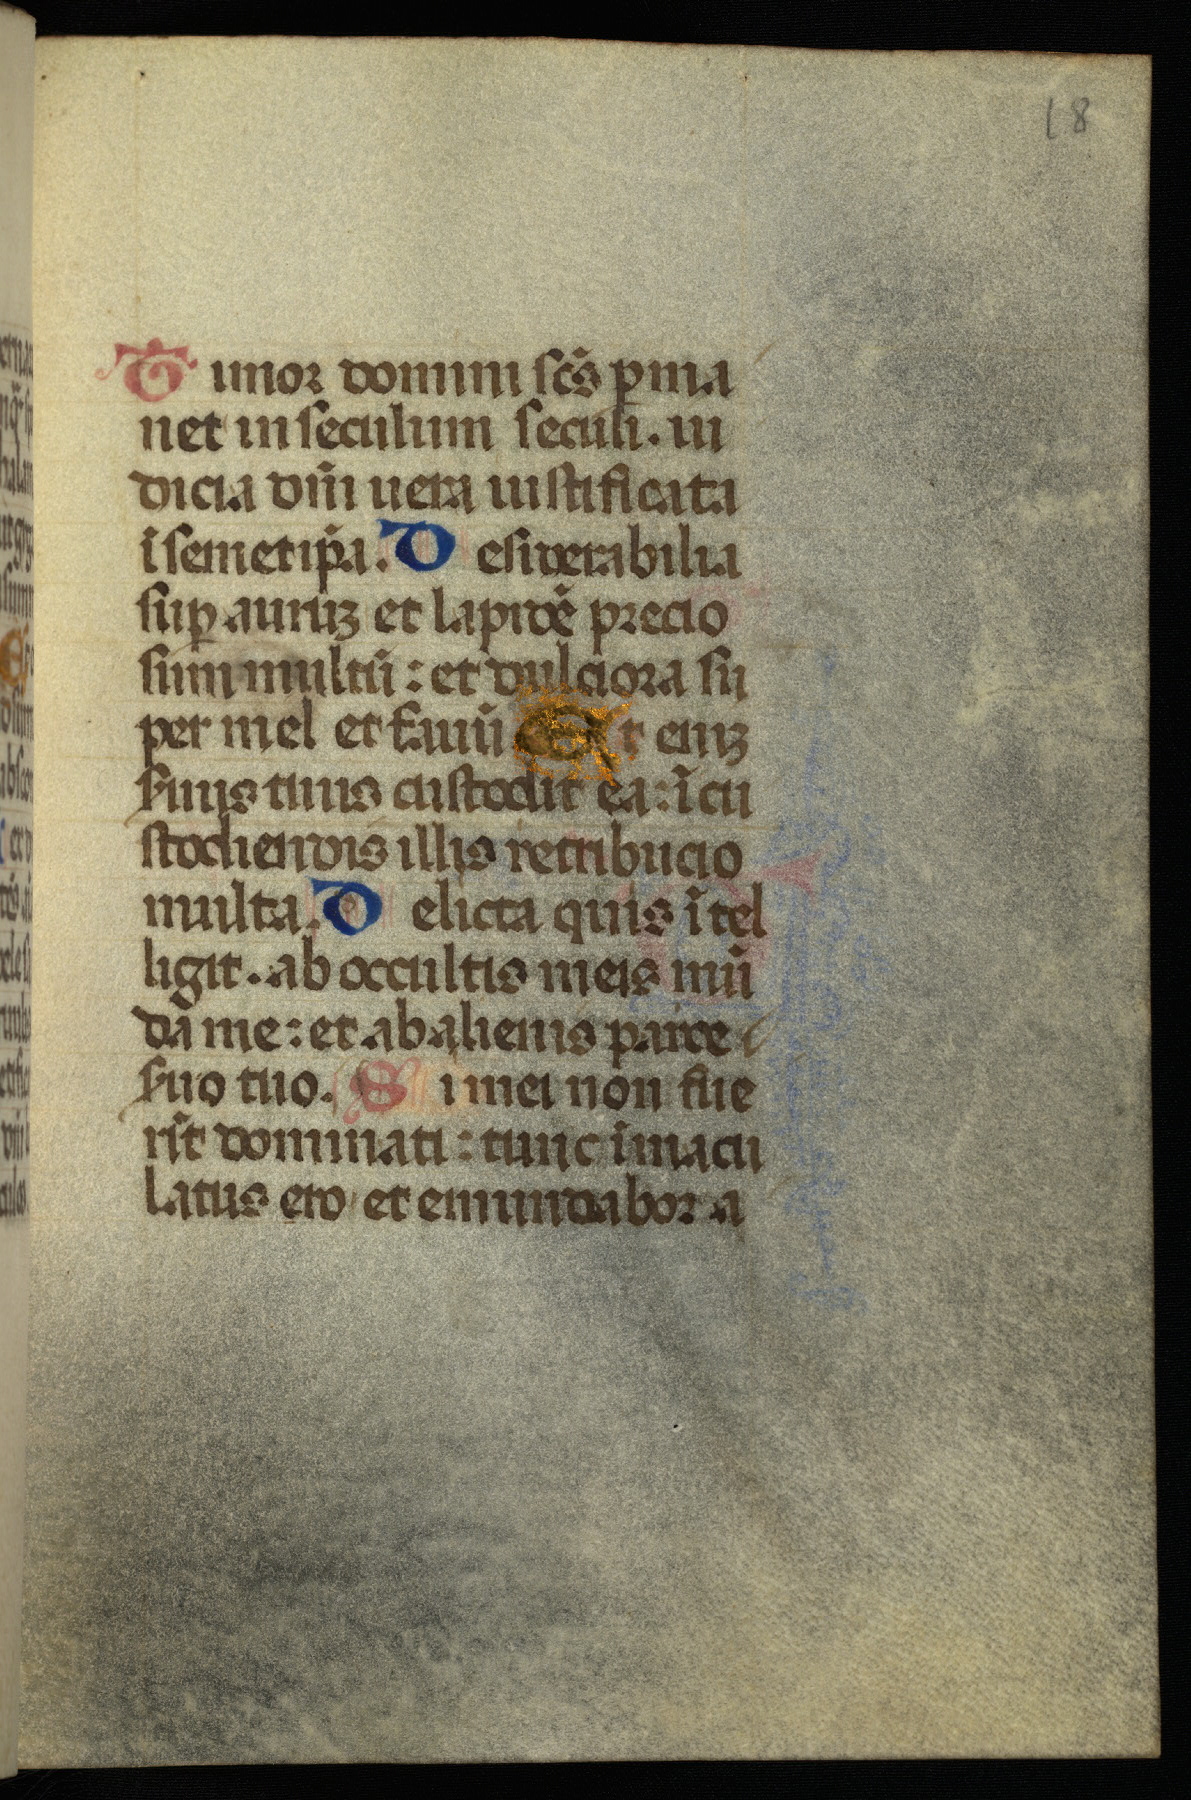 18
Timor domini scs̄ ꝑma
net in seculum seculi. iu
dicia dn̄i uera iustificata
ī semetip̄a. Desiderabilia
suꝑ auruꝫ et lapidē precio
sum multū : et dulciora su
per mel et fauū Et eniꝫ
suus tuus custodit ea : ī cu
stodiendis illis retribucio
multa. Delicta quis ītel
ligit. ab occultis meis mū
da me : et ab alienis parce
suo tuo. Si mei non fue
rīt dominati : tunc īmacu
latus ero et emundabor a